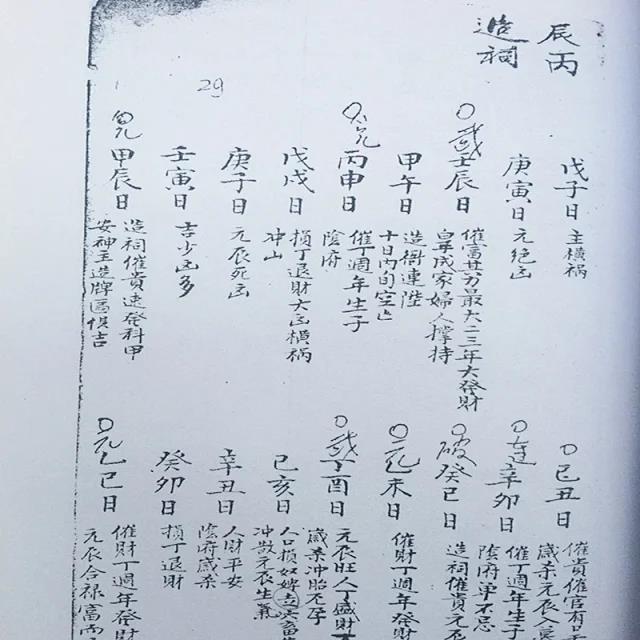 辰丙
造祠
戊子日 主橫禍
庚寅日 元絕凶
壬辰日 催富甘分最大二三年大發財
皇民成家婦人撐持
甲午日 造衙連陞
十日內旬空亡
丙申日 催丁週年生子
陰府
戊戌日 損丁退財大凶橫禍
冲山
庚子日 元辰死凶
壬寅日 吉少凶多
甲辰日 造祠催貴速發科甲
安神主造牌匾俱吉
29
己丑日 催貴催官有
歲杀元辰入
辛卯日 催丁週年生子
陰府
不忌
癸巳日 造祠催貴元辰
乙未日 催財丁週年發財
丁酉日 元辰旺人丁盛財
歲杀冲胎不孕
己亥日 人口損奴婢
冲敗元辰生氣
辛丑日 人財平安
陰府歲杀
癸卯日 損丁退財
乙巳日 催財丁週年發財
元辰合祿富